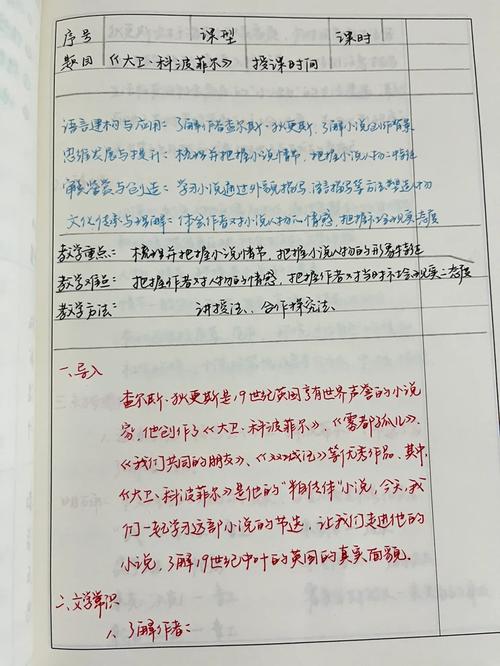 序号 课型 课时
题目 《大卫·科波菲尔》 授课时间
语言建构与应用：了解作者查尔斯·狄更斯，了解小说创作背景
思维发展与提升：梳理并把握小说情节，把握小说人物特征
审美鉴赏与创造：学习小说通过外貌描写、语言描写等方法塑造人物
文化传承与理解：体会作者对小说人物情感，把握社会现实态度
教学重点：梳理并把握小说情节，把握小说人物的形象特征
教学难点：把握作者对人物的情感，把握作者对当时社会现实态度
教学方法：讲授法、合作探究法
一、导入
查尔斯·狄更斯是19世纪英国享有世界声誉的小说
家，他创作了《大卫·科波菲尔》、《雾都孤儿》、
《我们共同的朋友》、《双城记》等优秀作品，其中
《大卫·科波菲尔》是他的"半自传体"小说，今天，我
们一起学习这部小说的节选，让我们走进他的
小说，了解19世纪中叶的英国的真实面貌。
二、文学常识
1、了解作者：